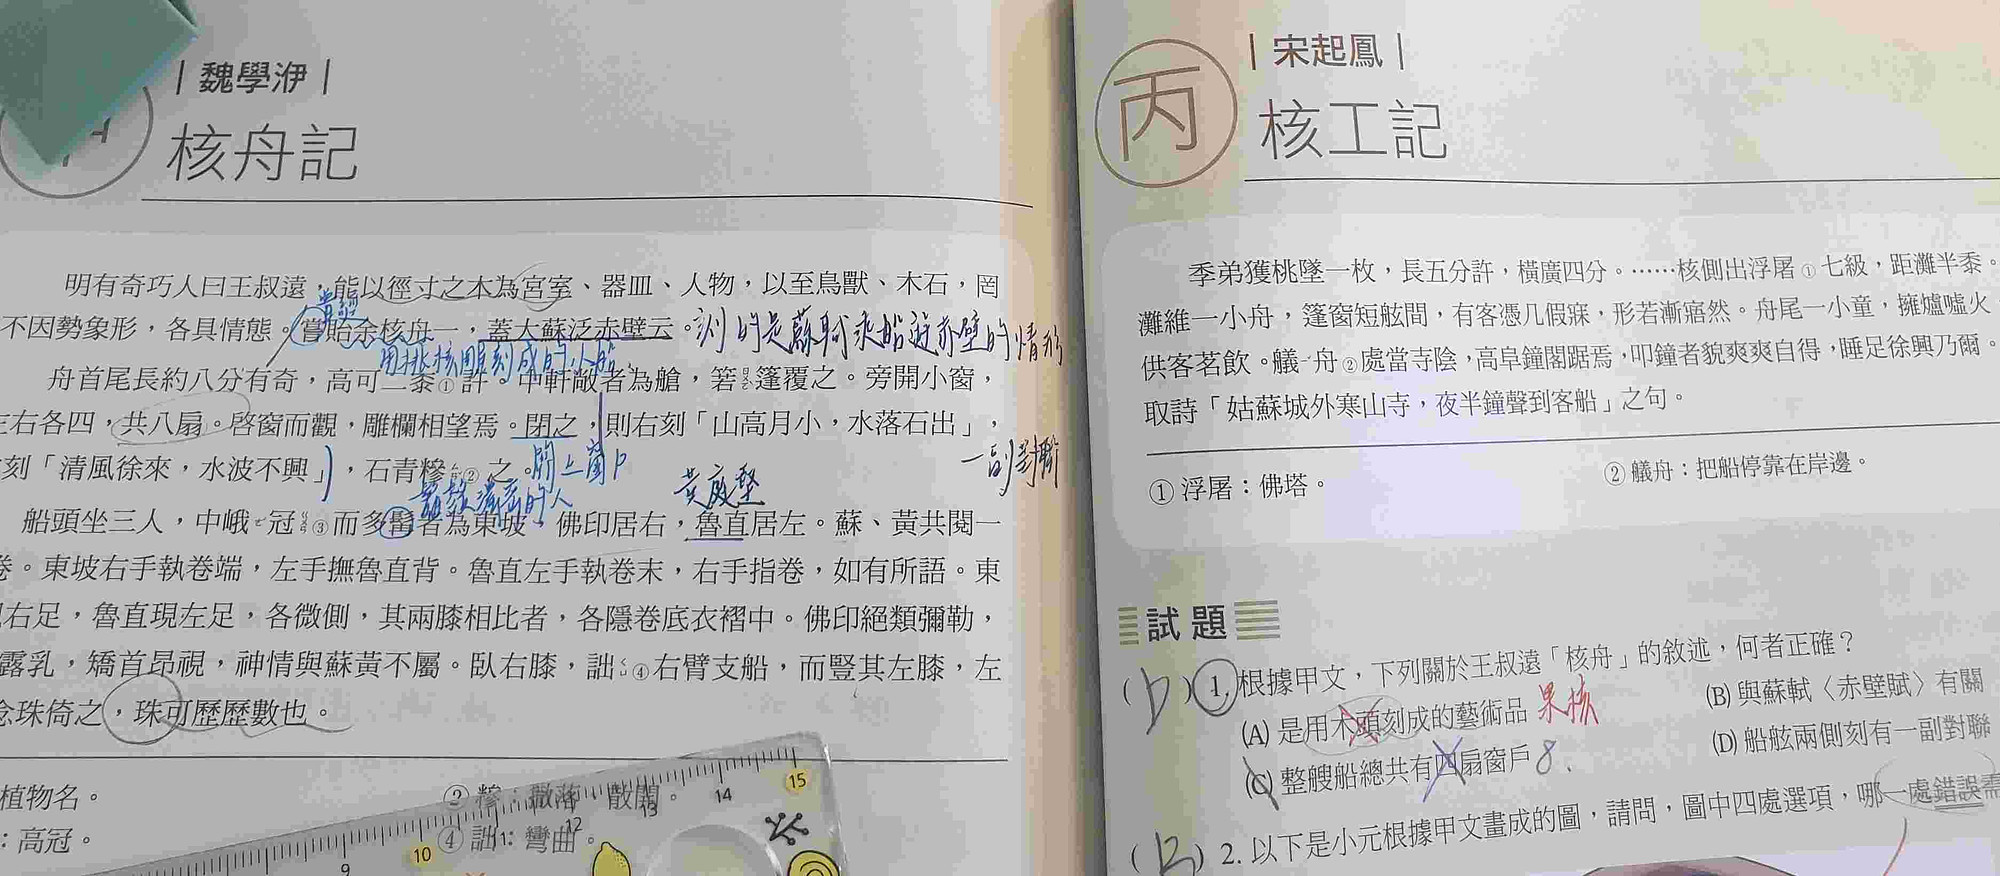 魏學洢
核舟記
明有奇巧人曰王叔遠，能以徑寸之木為宮室、器皿、人物，以至鳥獸、木石，罔
不因勢象形，各具情態。嘗貽余核舟一，蓋大蘇泛赤壁云。刻的是蘇軾乘船遊赤壁的情形
曾經
用桃核雕刻成的小船
舟首尾長約八分有奇，高可二黍①許。中軒敞者為艙，箬篷覆之。旁開小窗，
左右各四，共八扇。啓窗而觀，雕欄相望焉。閉之，則右刻「山高月小，水落石出」，
刻「清風徐來，水波不興」，石青糝②之。關上窗戶
一副對聯
黃庭堅
船頭坐三人，中峨冠③而多髯者為東坡，佛印居右，魯直居左。蘇、黃共閱一
卷。東坡右手執卷端，左手撫魯直背。魯直左手執卷末，右手指卷，如有所語。東
右足，魯直現左足，各微側，其兩膝相比者，各隱卷底衣褶中。佛印絕類彌勒，
露乳，矯首昂視，神情與蘇黃不屬。臥右膝，詘④右臂支船，而豎其左膝，左
念珠倚之，珠可歷歷數也。
植物名。
② 糝：撒落、散開。
：高冠。
④ 詘：彎曲。
9 10 11 12 13 14 15
丙
宋起鳳
核工記
季弟獲桃墜一枚，長五分許，橫廣四分。……核側出浮屠①七級，距灘半黍。
灘維一小舟，篷窗短舷間，有客憑几假寐，形若漸寤然。舟尾一小童，擁爐噓火
供客茗飲。艤舟②處當寺陰，高阜鐘閣踞焉，叩鐘者貌爽爽自得，睡足徐興乃爾。
取詩「姑蘇城外寒山寺，夜半鐘聲到客船」之句。
① 浮屠：佛塔。
② 艤舟：把船停靠在岸邊。
試題
(D) 1. 根據甲文，下列關於王叔遠「核舟」的敘述，何者正確？
(A) 是用木頭刻成的藝術品 果核
(B) 與蘇軾〈赤壁賦〉有關
(C) 整艘船總共有四扇窗戶 8.
(D) 船舷兩側刻有一副對聯
(B) 2. 以下是小元根據甲文畫成的圖，請問，圖中四處選項，哪一處錯誤